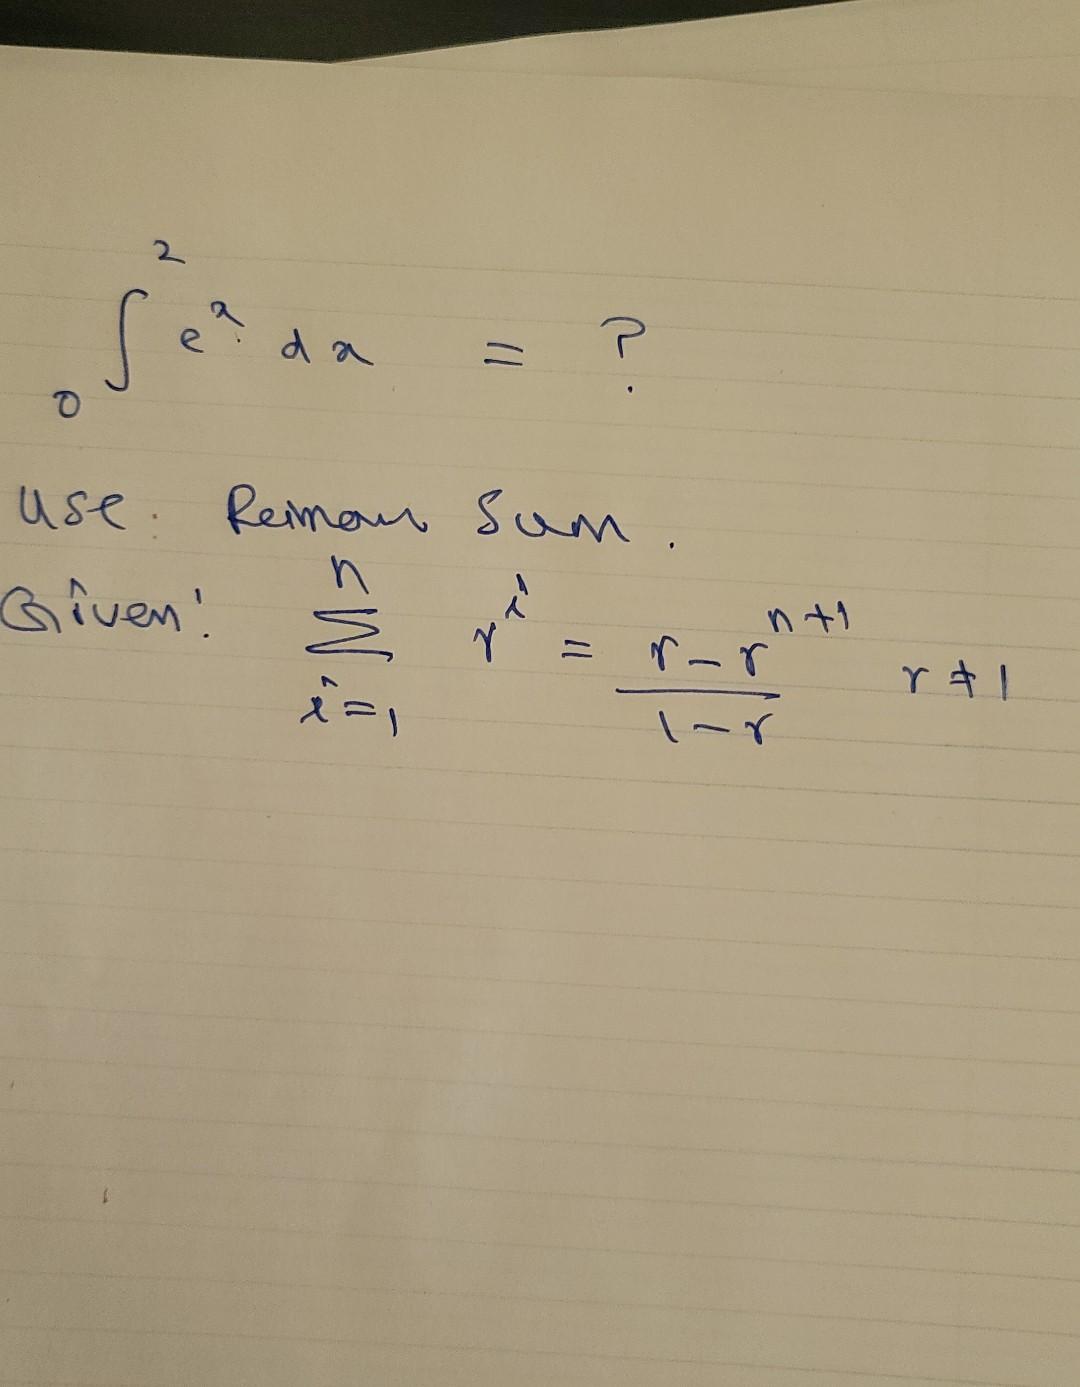 ∫₀² eˣ dx = ?
Use: Reiman Sum.
Given: ∑ᵢ₌₁ⁿ rⁱ = (r - rⁿ⁺¹)/(1 - r) r ≠ 1